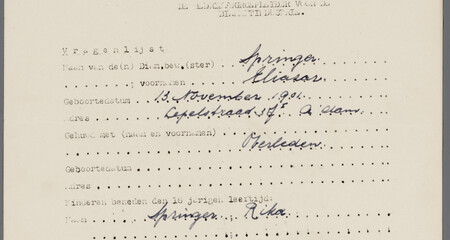 V r a g e n l i j s t
Naam van de(n) Dien.bew.(ster) Springer
voornamen Eliasar
Geboortedatum 13 November 1901
Adres Lepelstraat 37 A'dam
Gehuwd met (naam en voornamen)
Overleden
Geboortedatum
Adres
Kinderen beneden den 16 jarigen leeftijd:
Naam Springer, Rika